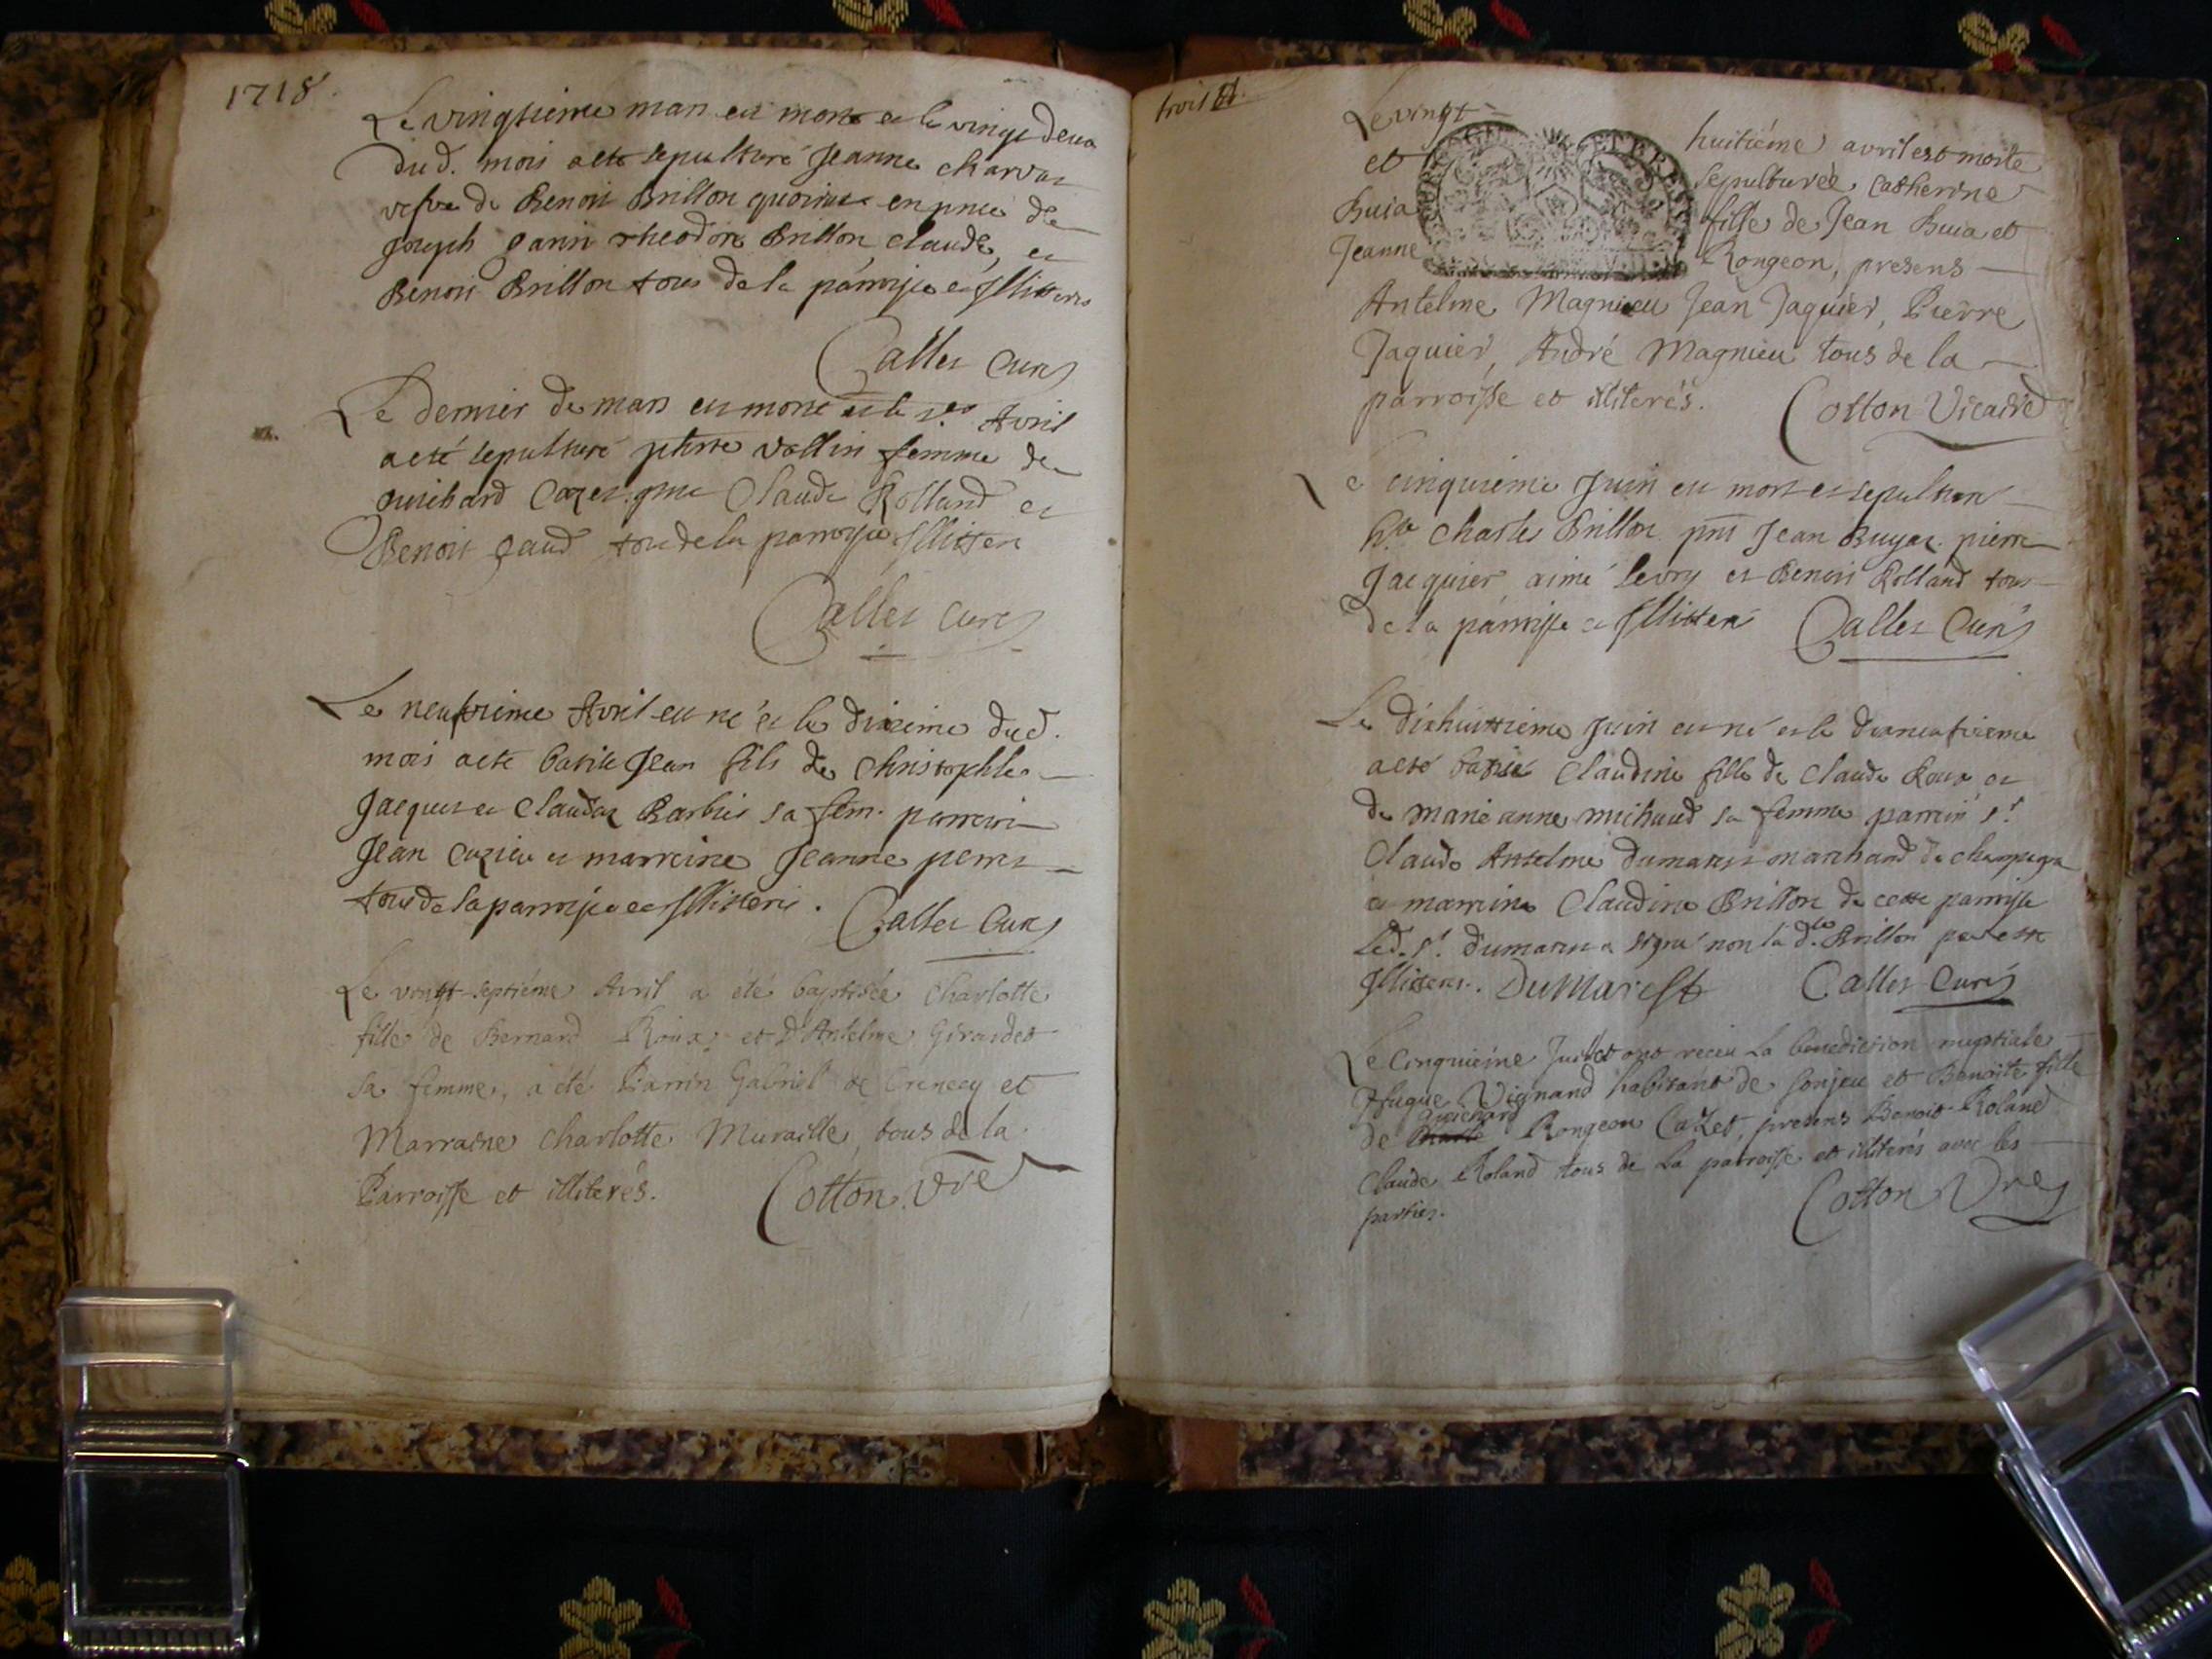 1718
Le vingtieme mars est morte et le vingt deux
dud. mois a ete sepulturé Jeanne charvar
vefve de Benoit Brillon en pnce de
Joseph garin theodore Brillon, claude, et
Benoit Brillon tous de la parroisse et Illiteres
Callet Curé
Le dernier de mars est morte et le Avril
a eté sepulturé vallin femme de
guichard Cazet. Claude Rolland et
Benoit gaud tous de la parroisse Illiteré
Callet Curé
Le neufvieme Avril est né et le dixieme dud.
mois a ete batisé Jean fils de Christophle
Jacquet et Claudaz Barbier sa fem. parrein
Jean Cuzieu et marreine Jeanne perret
tous de la parroisse et Illiteres.
Callet Curé
Le vingt-septiéme Avril a été baptisée Charlotte
fille de Bernard Roux et D'Antelme Girardet
sa femme, a été Parrin Gabriel de Crenecy et
Marraine Charlotte Muraille, tous de la
Parroisse et illiterés. Cotton Vre
trois d.
Le vingt huitiéme avril est morte
et sepulturée Catherine
Buia fille de Jean Buia et
Jeanne Rongeon, presens
Antelme Magnieu Jean Jaquier, Pierre
Jaquier, André Magnieu tous de la
parroisse et illiterés. Cotton Vicaire
Le cinquieme Juin est mort et sepulturé
Charles Brillon pnt Jean Buyat. pierre
Jacquier, aimé Levry et Benoit Rolland tous
de la parroisse et Illiteré Callet Curé
Le dixhuittieme Juin est né et le dixneufvieme
a eté batisé Claudine fille de Claude Roux et
de marie anne michaud sa femme parrein sr.
Claude Antelme dumarest marchand de champagne
et marreine Claudine Brillon de cette parroisse
Led. sr. dumarest a signé non la d.te Brillon pour estre
Illiteree. Dumarest Callet Curé
Le Cinquiéme Juillet ont receu la benediction nuptiale
Hugue Vignand habitant de Sonjeu et Benoite fille
de Guichard Rongeon Cazet, presens Benoit Roland
Claude Roland tous de la parroisse et illiterés avec les
parties. Cotton Vre